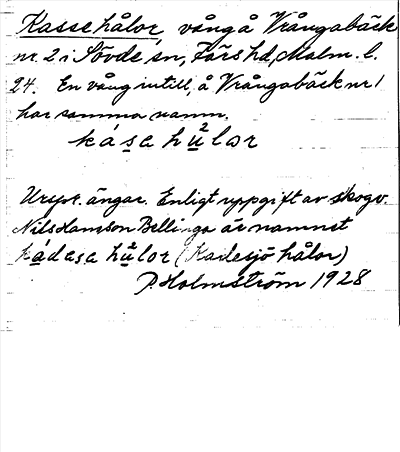 Kassehålor, vång å Vrångabäck
nr. 2 i Sövde sn, Färs hd, Malm. l.
24. En vång intill, å Vrångabäck nr 1
har samma namn.
kása hùlor
Urspr. ängar. Enligt uppgift av skogv.
Nils Hansson Bellinga är namnet
kádasa hùlor (Kadesjö hålor)
P. Holmström 1928